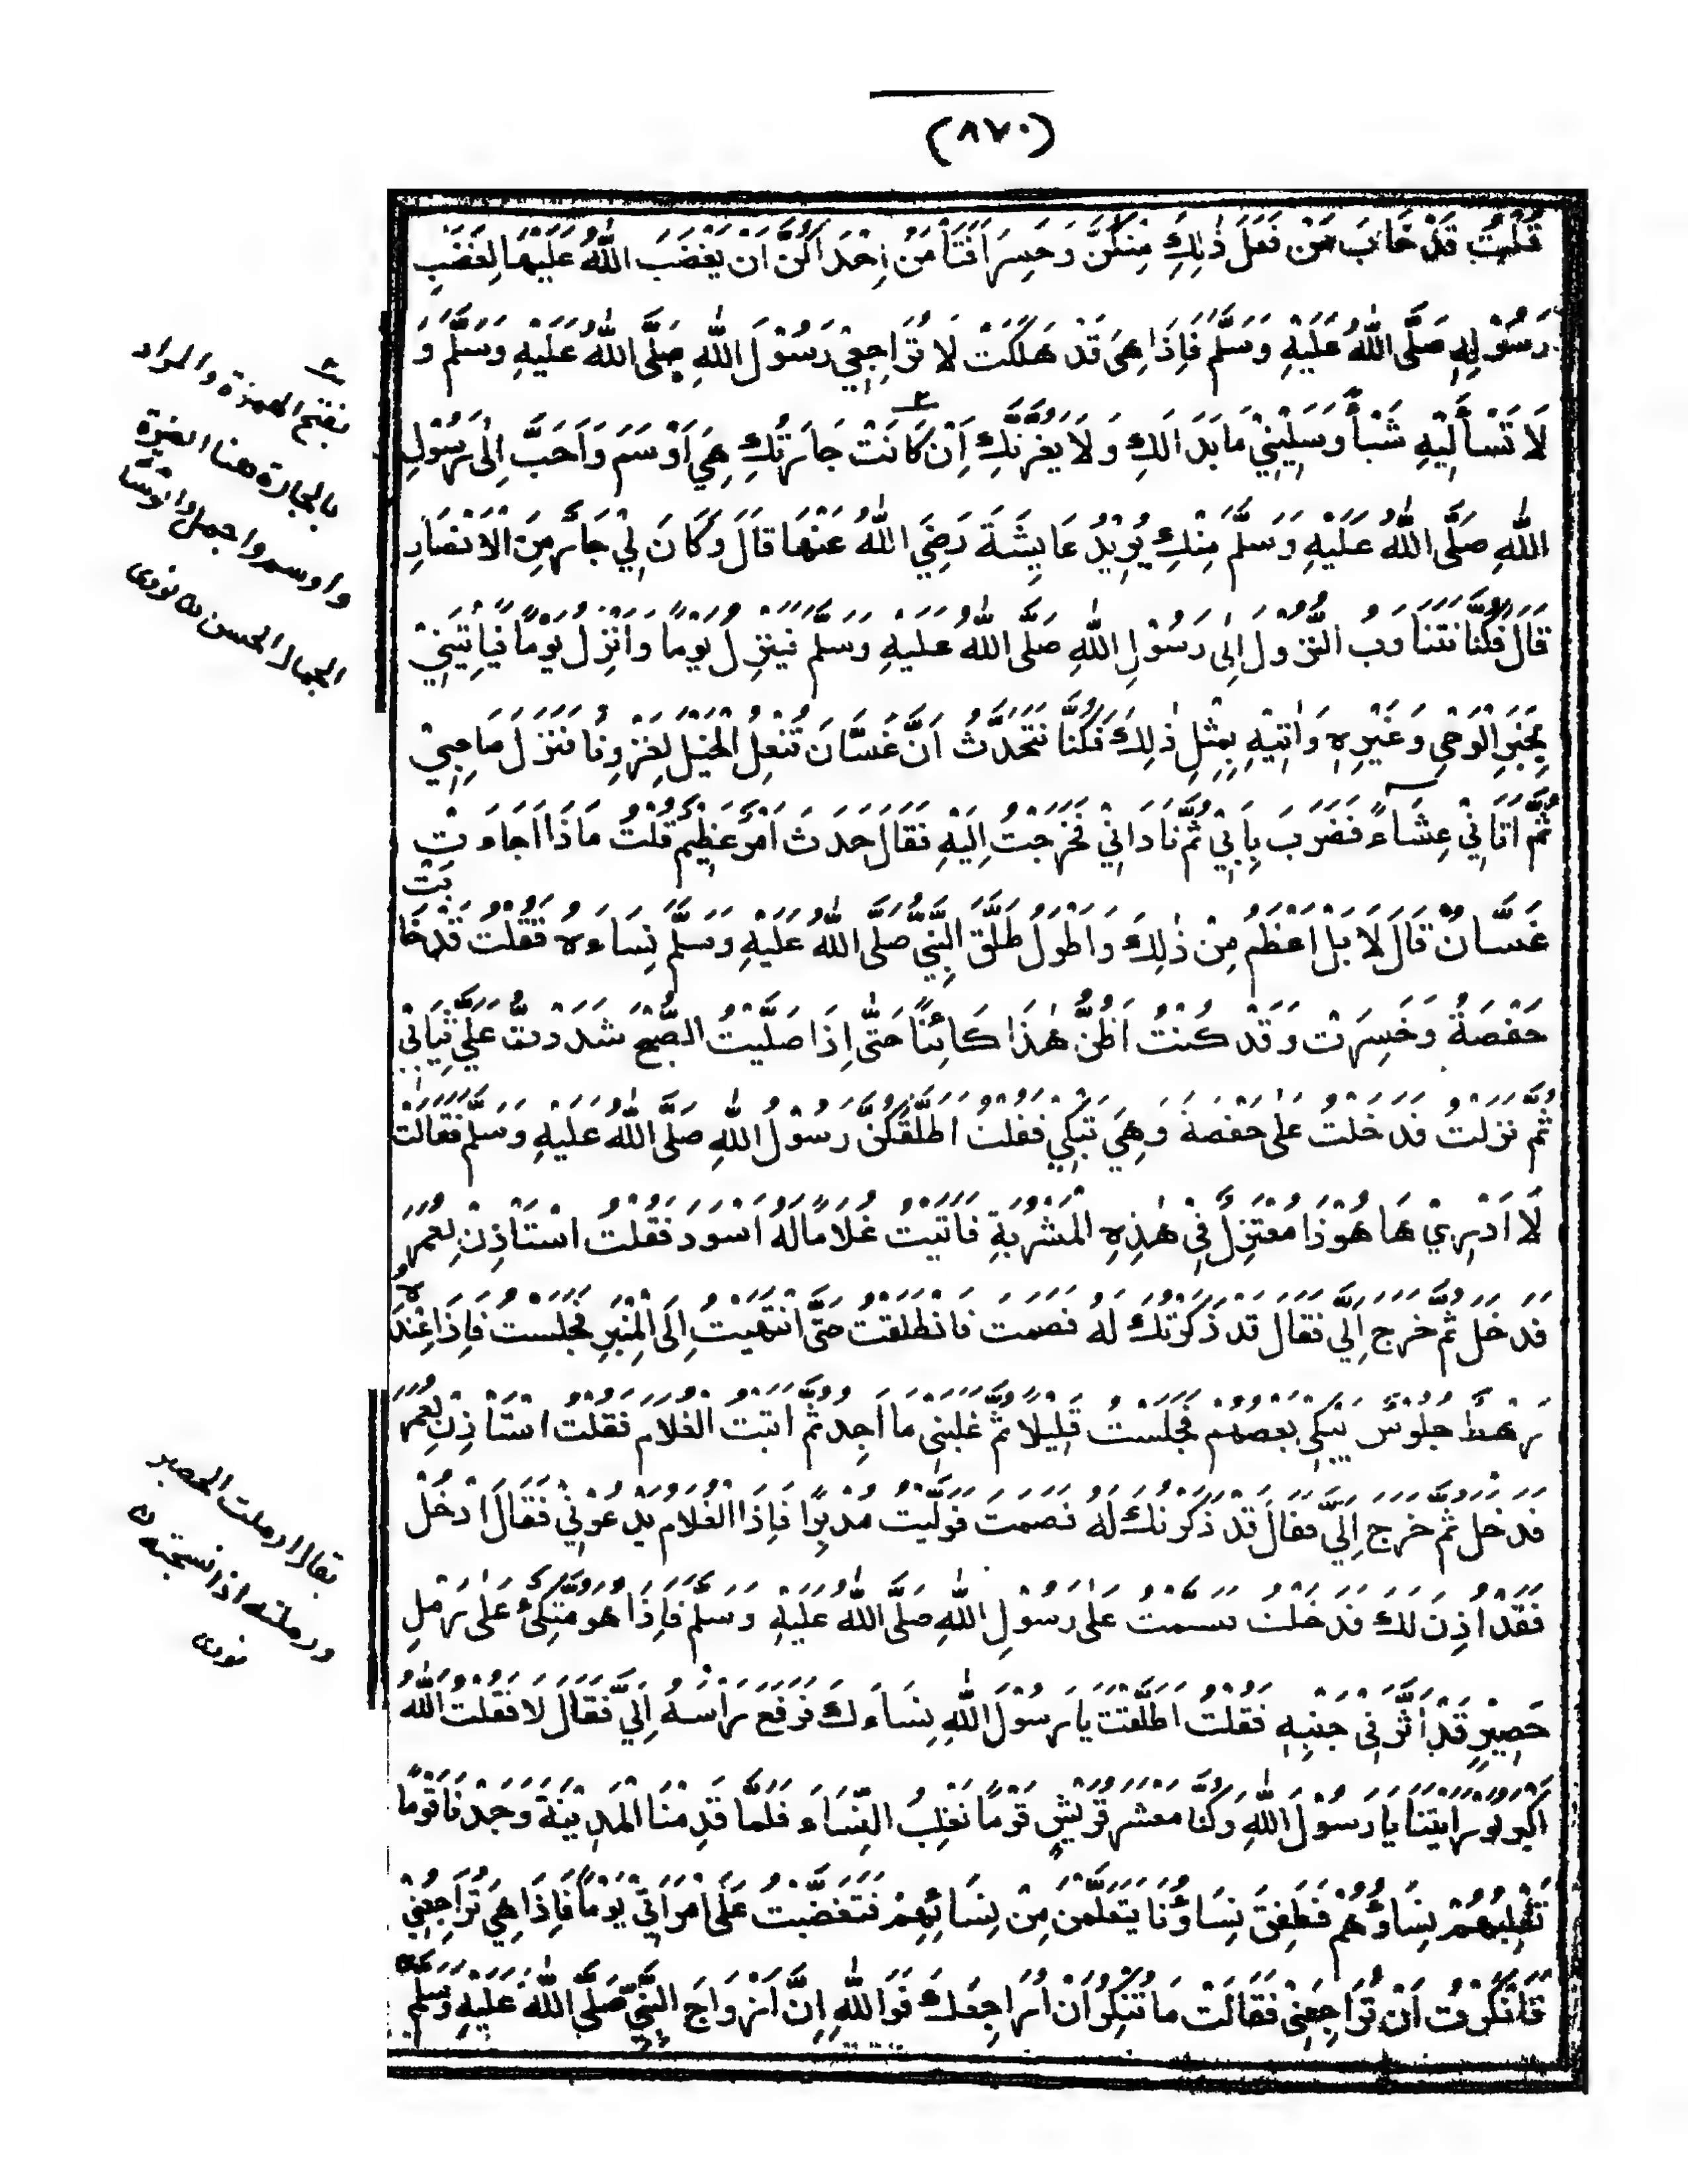 (٨٧٠)
قُلْتُ قَدْ خَابَ مَنْ فَعَلَ ذٰلِكِ مِنْكُنَّ وَخَسِرَ اَفَتَأْمَنُ اِحْدَاكُنَّ اَنْ يَغْضَبَ اللّٰهُ عَلَيْهَا لِغَضَبِ
رَسُوْلِهِ صَلَّى اللّٰهُ عَلَيْهِ وَسَلَّمَ فَاِذَا هِىَ قَدْ هَلَكَتْ لَا تُرَاجِعِيْ رَسُوْلَ اللّٰهِ صَلَّى اللّٰهُ عَلَيْهِ وَسَلَّمَ وَ
لَا تَسْأَلِيْهِ شَيْأً وَسَلِيْنِيْ مَا بَدَا لَكِ وَلَا يَغُرَّنَّكِ اَنْ كَانَتْ جَارَتُكِ هِيَ اَوْسَمَ وَاَحَبَّ اِلٰى رَسُوْلِ
اللّٰهِ صَلَّى اللّٰهُ عَلَيْهِ وَسَلَّمَ مِنْكِ يُرِيْدُ عَايِشَةَ رَضِيَ اللّٰهُ عَنْهَا قَالَ وَكَانَ لِيْ جَارٌ مِنَ الْاَنْصَارِ
قَالَ فَكُنَّا نَتَنَاوَبُ النُّزُوْلَ اِلٰى رَسُوْلِ اللّٰهِ صَلَّى اللّٰهُ عَلَيْهِ وَسَلَّمَ فَيَنْزِلُ يَوْمًا وَاَنْزِلُ يَوْمًا فَيَاتِيْنِيْ
بِخَبَرِ الْوَحْىِ وَغَيْرِهٖ وَاٰتِيْهِ بِمِثْلِ ذٰلِكَ فَكُنَّا نَتَحَدَّثُ اَنَّ غَسَّانَ تُنْعِلُ الْخَيْلَ لِغَزْوِنَا فَنَزَلَ صَاحِبِيْ
ثُمَّ اَتَانِيْ عِشَاءً فَضَرَبَ بَابِيْ ثُمَّ نَادَانِيْ فَخَرَجْتُ اِلَيْهِ فَقَالَ حَدَثَ اَمْرٌ عَظِيْمٌ قُلْتُ مَاذَا اَجَاءَتْ
غَسَّانُ قَالَ لَا بَلْ اَعْظَمُ مِنْ ذٰلِكَ وَاَطْوَلُ طَلَّقَ النَّبِيُّ صَلَّى اللّٰهُ عَلَيْهِ وَسَلَّمَ نِسَاءَهُ فَقُلْتُ قَدْ خَابَتْ
حَفْصَةُ وَخَسِرَتْ وَقَدْ كُنْتُ اَظُنُّ هٰذَا كَائِنًا حَتّٰى اِذَا صَلَّيْتُ الصُّبْحَ شَدَدْتُ عَلَيَّ ثِيَابِيْ
ثُمَّ نَزَلْتُ فَدَخَلْتُ عَلٰى حَفْصَةَ وَهِيَ تَبْكِيْ فَقُلْتُ اَطَلَّقَكُنَّ رَسُوْلُ اللّٰهِ صَلَّى اللّٰهُ عَلَيْهِ وَسَلَّمَ فَقَالَتْ
لَا اَدْرِيْ هَا هُوَ ذَا مُعْتَزِلٌ فِيْ هٰذِهِ الْمَشْرُبَةِ فَاَتَيْتُ غُلَامًا لَهُ اَسْوَدَ فَقُلْتُ اسْتَاْذِنْ لِعُمَرَ
فَدَخَلَ ثُمَّ خَرَجَ اِلَيَّ فَقَالَ قَدْ ذَكَرْتُكَ لَهُ فَصَمَتَ فَانْطَلَقْتُ حَتّٰى انْتَهَيْتُ اِلَى الْمِنْبَرِ فَجَلَسْتُ فَاِذَا عِنْدَهُ
رَهْطٌ جُلُوْسٌ يَبْكِيْ بَعْضُهُمْ فَجَلَسْتُ قَلِيْلًا ثُمَّ غَلَبَنِيْ مَا اَجِدُ ثُمَّ اَتَيْتُ الْغُلَامَ فَقُلْتُ اسْتَاْذِنْ لِعُمَرَ
فَدَخَلَ ثُمَّ خَرَجَ اِلَيَّ فَقَالَ قَدْ ذَكَرْتُكَ لَهُ فَصَمَتَ فَوَلَّيْتُ مُدْبِرًا فَاِذَا الْغُلَامُ يَدْعُوْنِيْ فَقَالَ ادْخُلْ
فَقَدْ اَذِنَ لَكَ فَدَخَلْتُ فَسَلَّمْتُ عَلٰى رَسُوْلِ اللّٰهِ صَلَّى اللّٰهُ عَلَيْهِ وَسَلَّمَ فَاِذَا هُوَ مُتَّكِئٌ عَلٰى رَمْلِ
حَصِيْرٍ قَدْ اَثَّرَ فِيْ جَنْبِهٖ فَقُلْتُ اَطَلَّقْتَ يَا رَسُوْلَ اللّٰهِ نِسَاءَكَ فَرَفَعَ رَاْسَهُ اِلَيَّ فَقَالَ لَا فَقُلْتُ اللّٰهُ
اَكْبَرُ لَوْ رَاَيْتَنَا يَا رَسُوْلَ اللّٰهِ وَكُنَّا مَعْشَرَ قُرَيْشٍ قَوْمًا نَغْلِبُ النِّسَاءَ فَلَمَّا قَدِمْنَا الْمَدِيْنَةَ وَجَدْنَا قَوْمًا
تَغْلِبُهُمْ نِسَاؤُهُمْ فَطَفِقَ نِسَاؤُنَا يَتَعَلَّمْنَ مِنْ نِسَائِهِمْ فَتَغَضَّبْتُ عَلَى امْرَاَتِيْ يَوْمًا فَاِذَا هِيَ تُرَاجِعُنِيْ
فَاَنْكَرْتُ اَنْ تُرَاجِعَنِيْ فَقَالَتْ مَا تُنْكِرُ اَنْ اُرَاجِعَكَ فَوَاللّٰهِ اِنَّ اَزْوَاجَ النَّبِيِّ صَلَّى اللّٰهُ عَلَيْهِ وَسَلَّمَ
بفتح الهمزة والمراد
بالجارة هنا الضرة
واوسم واجمل والوسامة
الجمال الحسن نووى
يقال ارملت الحصير
ورملته اذا نسجته
نووى